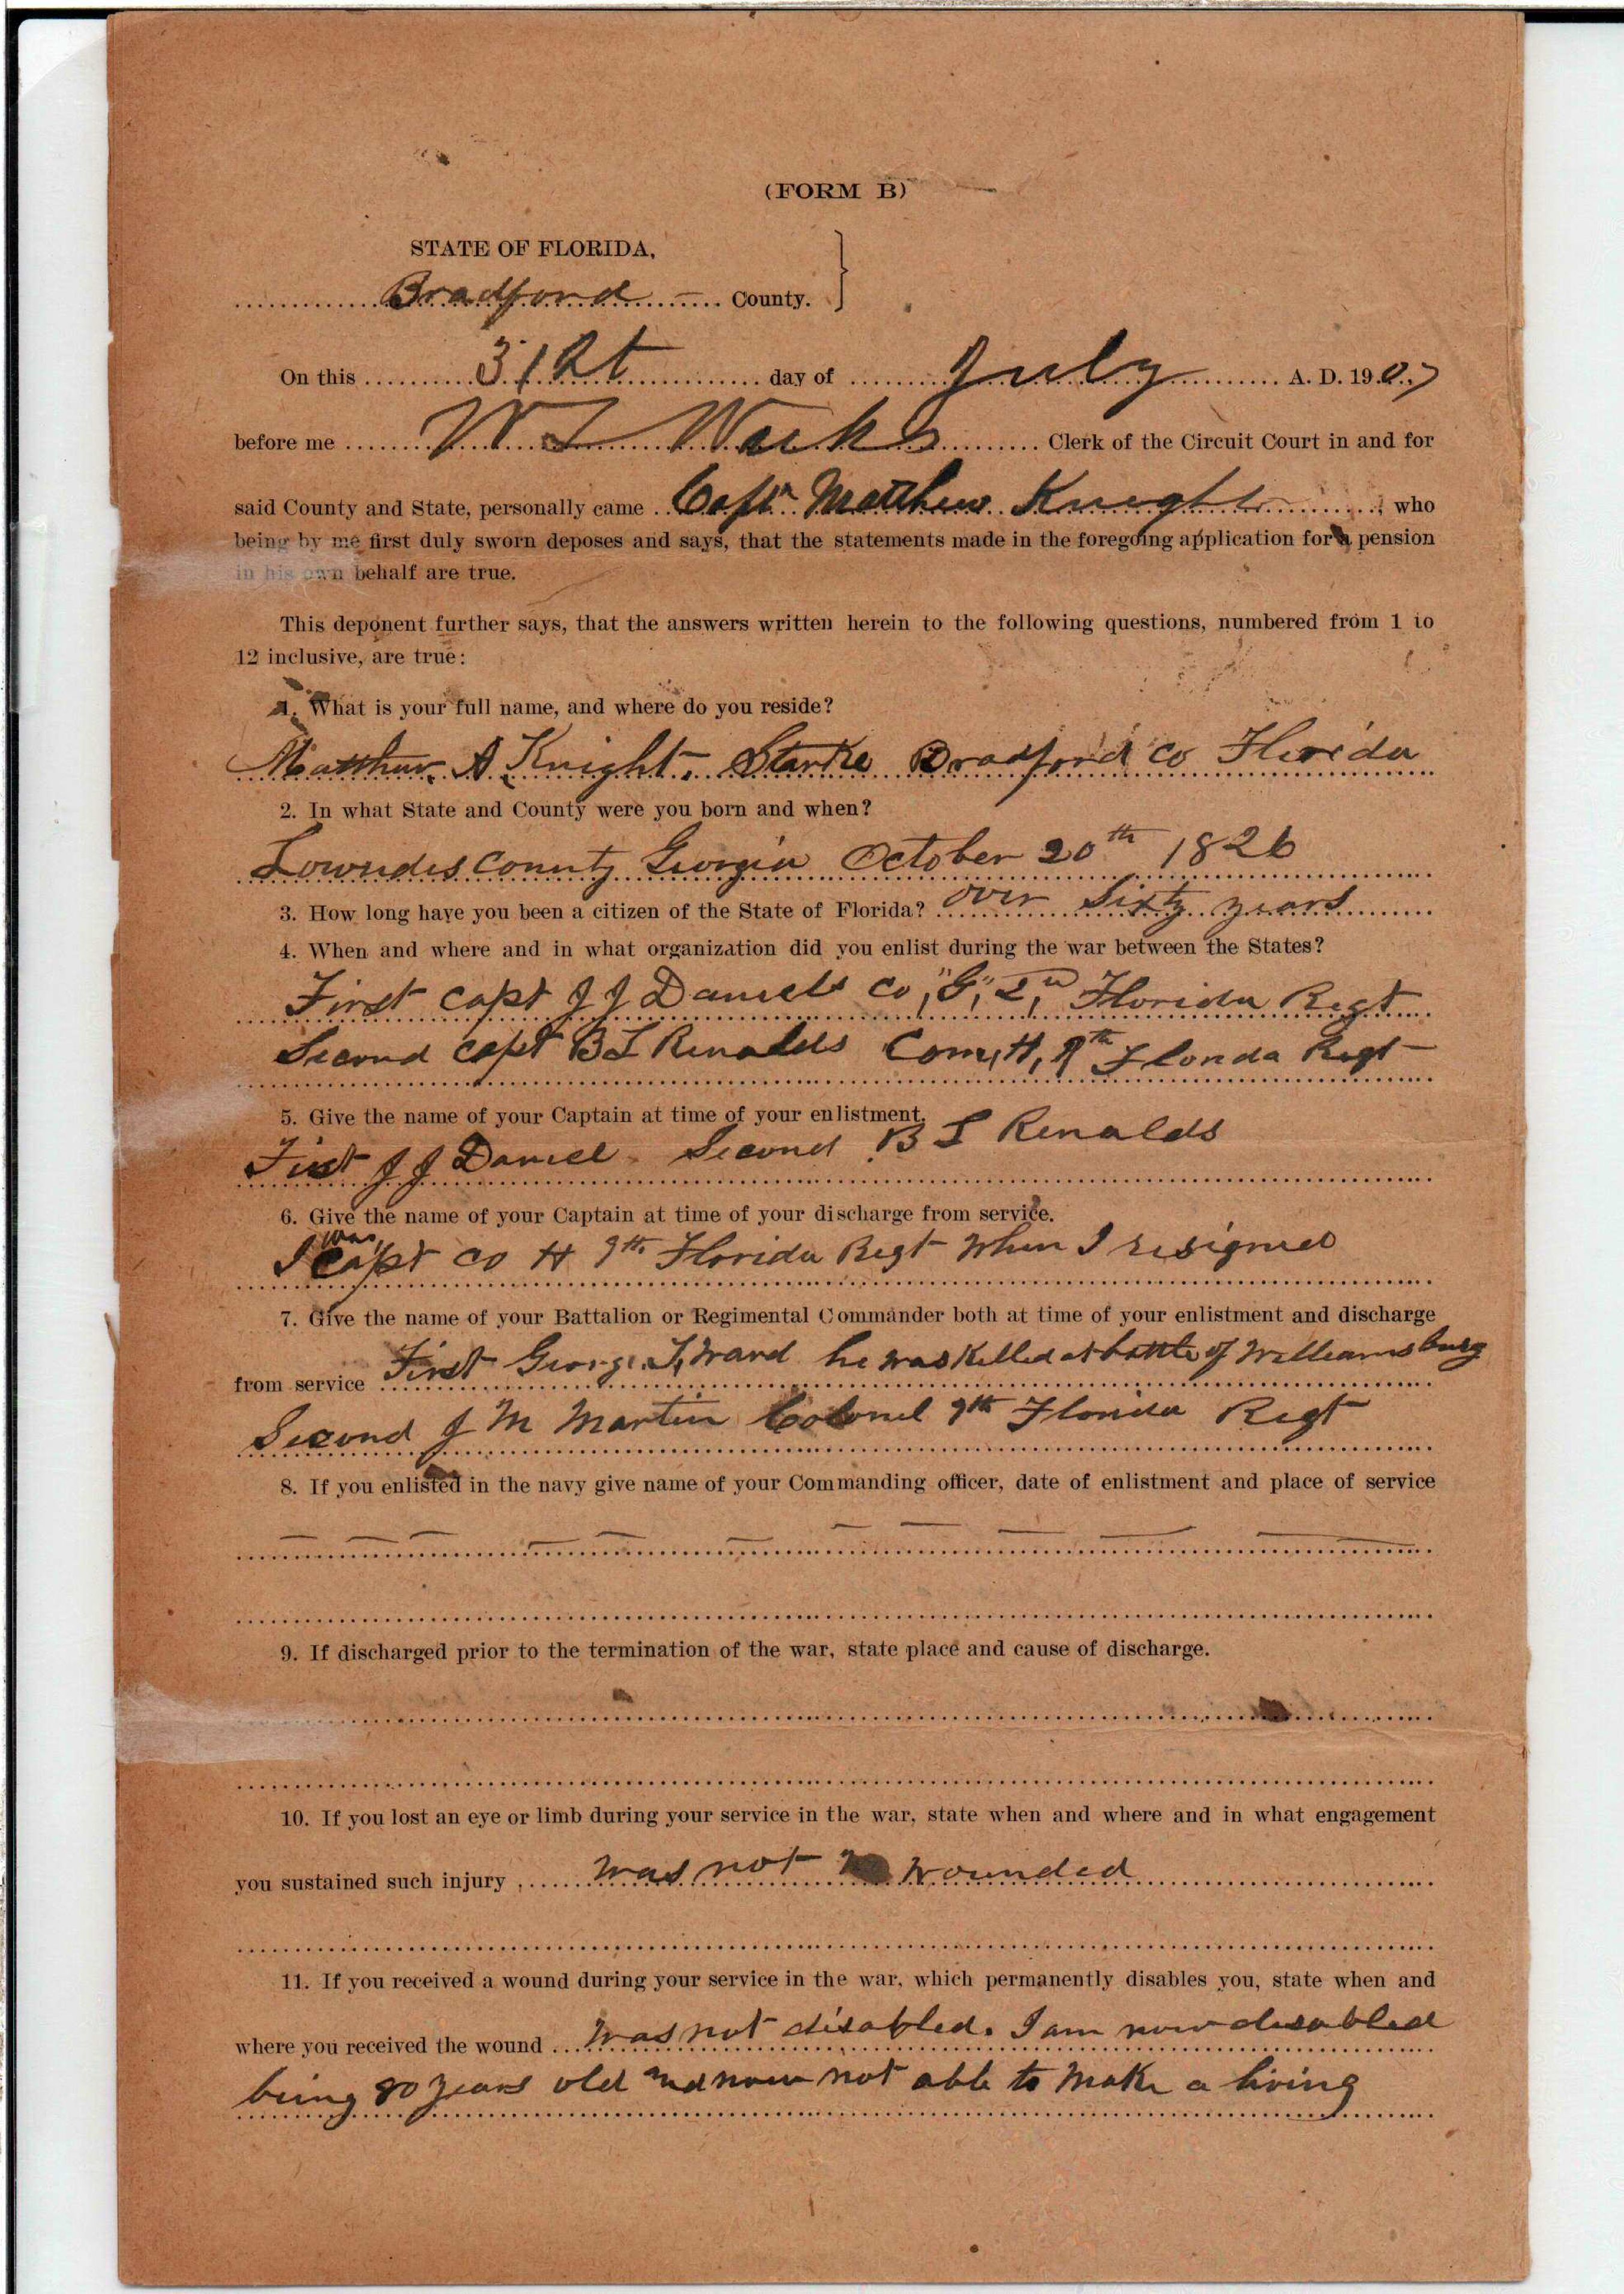 (FORM B)
STATE OF FLORIDA,
Bradford County.
On this 31st day of July A. D. 1907
before me W Weeks Clerk of the Circuit Court in and for
said County and State, personally came Capt Matthew Knight, who
being by me first duly sworn deposes and says, that the statements made in the foregoing application for a pension
in his own behalf are true.
This deponent further says, that the answers written herein to the following questions, numbered from 1 to
12 inclusive, are true:
1. What is your full name, and where do you reside?
Matthew A Knight. Starke Bradford Co Florida
2. In what State and County were you born and when?
Lowndes County Georgia October 20th 1826
3. How long have you been a citizen of the State of Florida? over Sixty years
4. When and where and in what organization did you enlist during the war between the States?
First Capt J J Daniels Co, "G", 2nd, Florida Regt
Second Capt B L Renalds Com, H, 9th Florida Regt
5. Give the name of your Captain at time of your enlistment.
First J J Daniel Second B L Renalds
6. Give the name of your Captain at time of your discharge from service.
I was Capt Co H 9th Florida Regt When I resigned
7. Give the name of your Battalion or Regimental Commander both at time of your enlistment and discharge
from service First George T, Ward he was Killed at battle of Williamsburg
Second J M Martin Colonel 9th Florida Regt
8. If you enlisted in the navy give name of your Commanding officer, date of enlistment and place of service
9. If discharged prior to the termination of the war, state place and cause of discharge.
10. If you lost an eye or limb during your service in the war, state when and where and in what engagement
you sustained such injury was not wounded
11. If you received a wound during your service in the war, which permanently disables you, state when and
where you received the wound Was not disabled. I am now disabled
being 80 years old and now not able to make a living